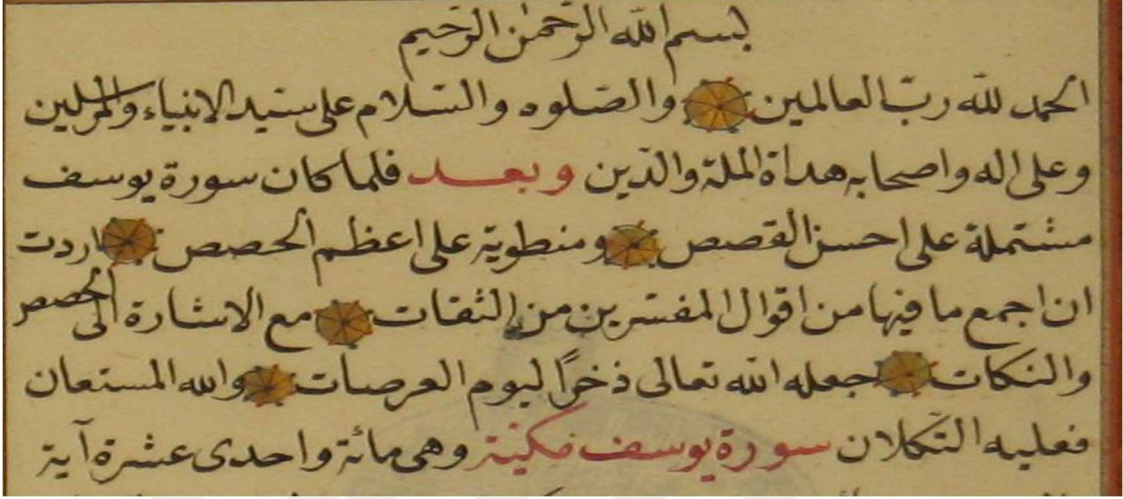 بسم الله الرحمن الرحيم
الحمد لله رب العالمين والصلوه والسلام على سيد الانبياء والمرسلين
وعلى اله واصحابه هداة الملة والدين وبعد فلما كان سورة يوسف
مشتملة على احسن القصص ومنطوية على اعظم الحصص اردت
ان اجمع ما فيها من اقوال المفسرين من الثقات مع الاشارة الى الحصص
والنكات جعله الله تعالى ذخرًا ليوم العرصات والله المستعان
فعليه التكلان سورة يوسف مكية وهى مائة واحدى عشرة آية